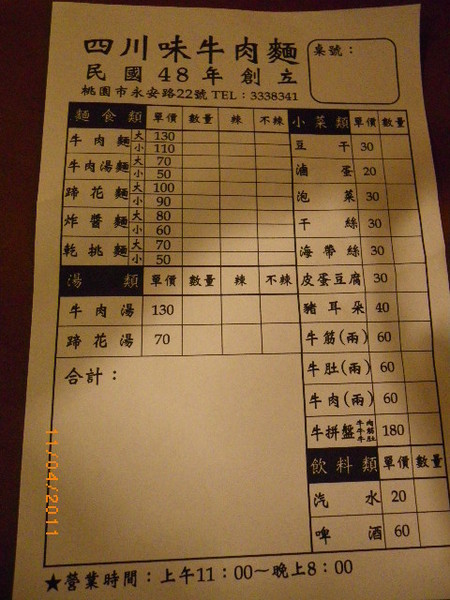 四川味牛肉麵
民國48年創立
桃園市永安路22號 TEL：3338341
桌號：
麵食類 單價 數量 辣 不辣
牛肉麵 大 130
小 110
牛肉湯麵 大 70
小 50
蹄花麵 大 100
小 90
炸醬麵 大 80
小 60
乾挑麵 大 70
小 50
湯類 單價 數量 辣 不辣
牛肉湯 130
蹄花湯 70
合計：
小菜類 單價 數量
豆干 30
滷蛋 20
泡菜 30
干絲 30
海帶絲 30
皮蛋豆腐 30
豬耳朵 40
牛筋(兩) 60
牛肚(兩) 60
牛肉(兩) 60
牛拼盤 牛肉 牛筋 牛肚 180
飲料類 單價 數量
汽水 20
啤酒 60
★營業時間：上午11：00～晚上8：00
11/04/2011